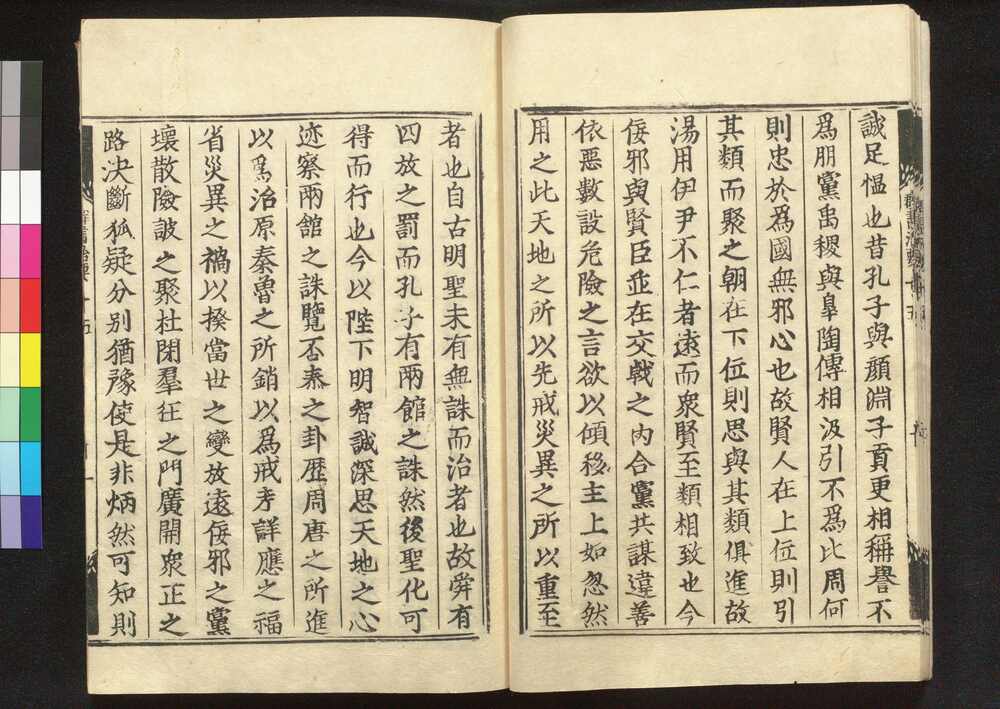 誠足慍也昔孔子與顔淵子貢更相稱譽不
爲朋黨禹稷與臯陶傳相汲引不爲比周何
則忠於爲國無邪心也故賢人在上位則引
其類而聚之朝在下位則思與其類俱進故
湯用伊尹不仁者遠而衆賢至類相致也今
佞邪與賢臣並在交戟之內合黨共謀違善
依惡數設危險之言欲以傾移主上如忽然
用之此天地之所以先戒災異之所以重至
者也自古明聖未有無誅而治者也故舜有
四放之罰而孔子有兩館之誅然後聖化可
得而行也今以陛下明智誠深思天地之心
迹察兩館之誅覽否泰之卦歷周唐之所進
以爲治原秦魯之所銷以爲戒考詳應之福
省災異之禍以揆當世之變放遠佞邪之黨
壞散險詖之聚杜閉羣枉之門廣開衆正之
路決斷狐疑分别猶豫使是非炳然可知則